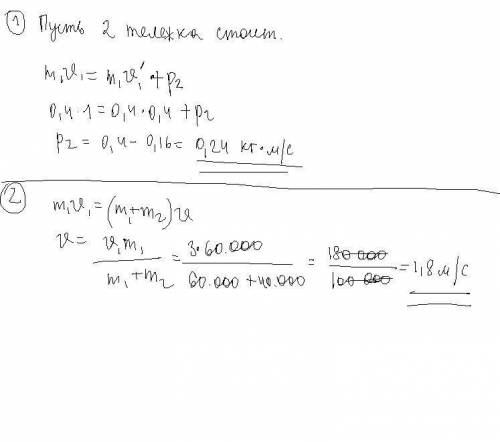 1 Пусть 2 тележка стоит.
m₁υ₁ = m₁υ₁' + p₂
0,4·1 = 0,4·0,4 + p₂
p₂ = 0,4 - 0,16 = 0,24 кг·м/с
2 m₁υ₁ = (m₁+m₂)υ
υ = υ₁m₁ / m₁+m₂ = 3·60.000 / 60.000+40.000 = 180 000 / 100 000 = 1,8 м/с